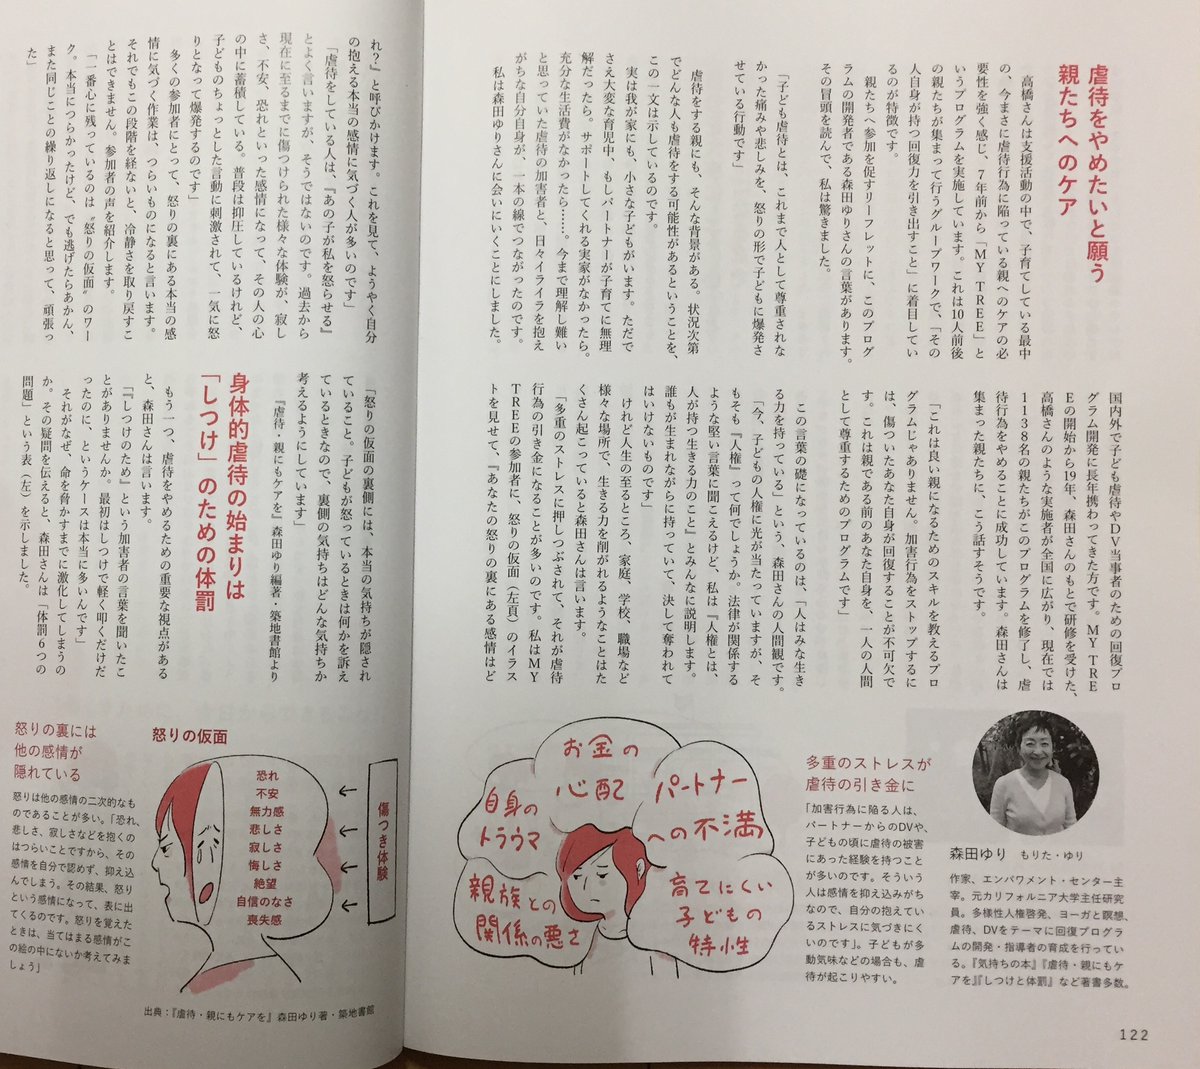 虐待をやめたいと願う
親たちへのケア
高橋さんは支援活動の中で、子育てしている最中
の、今まさに虐待行為に陥っている親へのケアの必
要性を強く感じ、7年前から「MY TREE」と
いうプログラムを実施しています。これは10人前後
の親たちが集まって行うグループワークで、「その
人自身が持つ回復力を引き出すこと」に着目してい
るのが特徴です。
親たちへ参加を促すリーフレットに、このプログ
ラムの開発者である森田ゆりさんの言葉があります。
その冒頭を読んで、私は驚きました。
「子ども虐待とは、これまで人として尊重されな
かった痛みや悲しみを、怒りの形で子どもに爆発さ
せている行動です」
虐待をする親にも、そんな背景がある。状況次第
でどんな人も虐待をする可能性があるということを、
この一文は示しているのです。
実は我が家にも、小さな子どもがいます。ただで
さえ大変な育児中、もしパートナーが子育てに無理
解だったら。サポートしてくれる実家がなかったら。
充分な生活費がなかったら……。今まで理解し難い
と思っていた虐待の加害者と、日々イライラを抱え
がちな自分自身が、一本の線でつながったのです。
私は森田ゆりさんに会いにいくことにしました。
国内外で子ども虐待やDV当事者のための回復プロ
グラム開発に長年携わってきた方です。MY TRE
Eの開始から19年、森田さんのもとで研修を受けた、
高橋さんのような実施者が全国に広がり、現在では
1138名の親たちがこのプログラムを修了し、虐
待行為をやめることに成功しています。森田さんは
集まった親たちに、こう話すそうです。
「これは良い親になるためのスキルを教えるプロ
グラムじゃありません。加害行為をストップするに
は、傷ついたあなた自身が回復することが不可欠で
す。これは親である前のあなた自身を、一人の人間
として尊重するためのプログラムです」
この言葉の礎になっているのは、「人はみな生き
る力を持っている」という、森田さんの人間観です。
「今、子どもの人権に光が当たっていますが、そ
もそも『人権』って何でしょうか。法律が関係する
ような堅い言葉に聞こえるけど、私は『人権とは、
人が持つ生きる力のこと』とみんなに説明します。
誰もが生まれながらに持っていて、決して奪われて
はいけないものです」
けれど人生の至るところ、家庭、学校、職場など
様々な場所で、生きる力を削がれるようなことはた
くさん起こっていると森田さんは言います。
「多重のストレスに押しつぶされて、それが虐待
行為の引き金になることが多いのです。私はMY
TREEの参加者に、怒りの仮面(左頁)のイラス
トを見せて、『あなたの怒りの裏にある感情はど
お金の
心配
パートナー
への不満
自身の
トラウマ
親族との
関係の悪さ
育てにくい
子どもの
特性
多重のストレスが
虐待の引き金に
「加害行為に陥る人は、
パートナーからのDVや、
子どもの頃に虐待の被害
にあった経験を持つこと
が多いのです。そういう
人は感情を抑え込みがち
なので、自分の抱えてい
るストレスに気づきにく
いのです」。子どもが多
動気味などの場合も、虐
待が起こりやすい。
森田ゆり もりた・ゆり
作家、エンパワメント・センター主
宰。元カリフォルニア大学主任研究
員。多様性人権啓発、ヨーガと瞑想、
虐待、DVをテーマに回復プログラ
ムの開発・指導者の育成を行ってい
る。『気持ちの本』『虐待・親にもケ
アを』『しつけと体罰』など著書多数。
122
れ?』と呼びかけます。これを見て、ようやく自分
の抱える本当の感情に気づく人が多いのです」
「虐待をしている人は、『あの子が私を怒らせる』
とよく言いますが、そうではないのです。過去から
現在に至るまでに傷つけられた様々な体験が、寂し
さ、不安、恐れといった感情になって、その人の心
の中に蓄積している。普段は抑圧しているけれど、
子どものちょっとした言動に刺激されて、一気に怒
りとなって爆発するのです」
多くの参加者にとって、怒りの裏にある本当の感
情に気づく作業は、つらいものになると言います。
それでもこの段階を経ないと、冷静さを取り戻すこ
とはできません。参加者の声を紹介します。
「一番心に残っているのは〝怒りの仮面〟のワー
ク。本当につらかったけど、でも逃げたらあかん、
また同じことの繰り返しになると思って、頑張っ
た」
「怒りの仮面の裏側には、本当の気持ちが隠され
ていること。子どもが怒っているときは何かを訴え
ているときなので、裏側の気持ちはどんな気持ちか
考えるようにしています」
『虐待・親にもケアを』森田ゆり編著・築地書館より
身体的虐待の始まりは
「しつけ」のための体罰
もう一つ、虐待をやめるための重要な視点がある
と、森田さんは言います。
「『しつけのため』という加害者の言葉を聞いたこ
とがありませんか。最初はしつけで軽く叩くだけだ
ったのに、というケースは本当に多いんです」
それがなぜ、命を脅かすまでに激化してしまうの
か。その疑問を伝えると、森田さんは「体罰6つの
問題」という表(左)を示しました。
怒りの裏には
他の感情が
隠れている
怒りは他の感情の二次的なも
のであることが多い。「恐れ、
悲しさ、寂しさなどを抱くの
はつらいことですから、その
感情を自分で認めず、抑え込
んでしまう。その結果、怒り
という感情になって、表に出
てくるのです。怒りを覚えた
ときは、当てはまる感情がこ
の絵の中にないか考えてみま
しょう」
怒りの仮面
恐れ
不安
無力感
悲しさ
寂しさ
悔しさ
絶望
自信のなさ
喪失感
傷つき体験
出典:『虐待・親にもケアを』森田ゆり著・築地書館